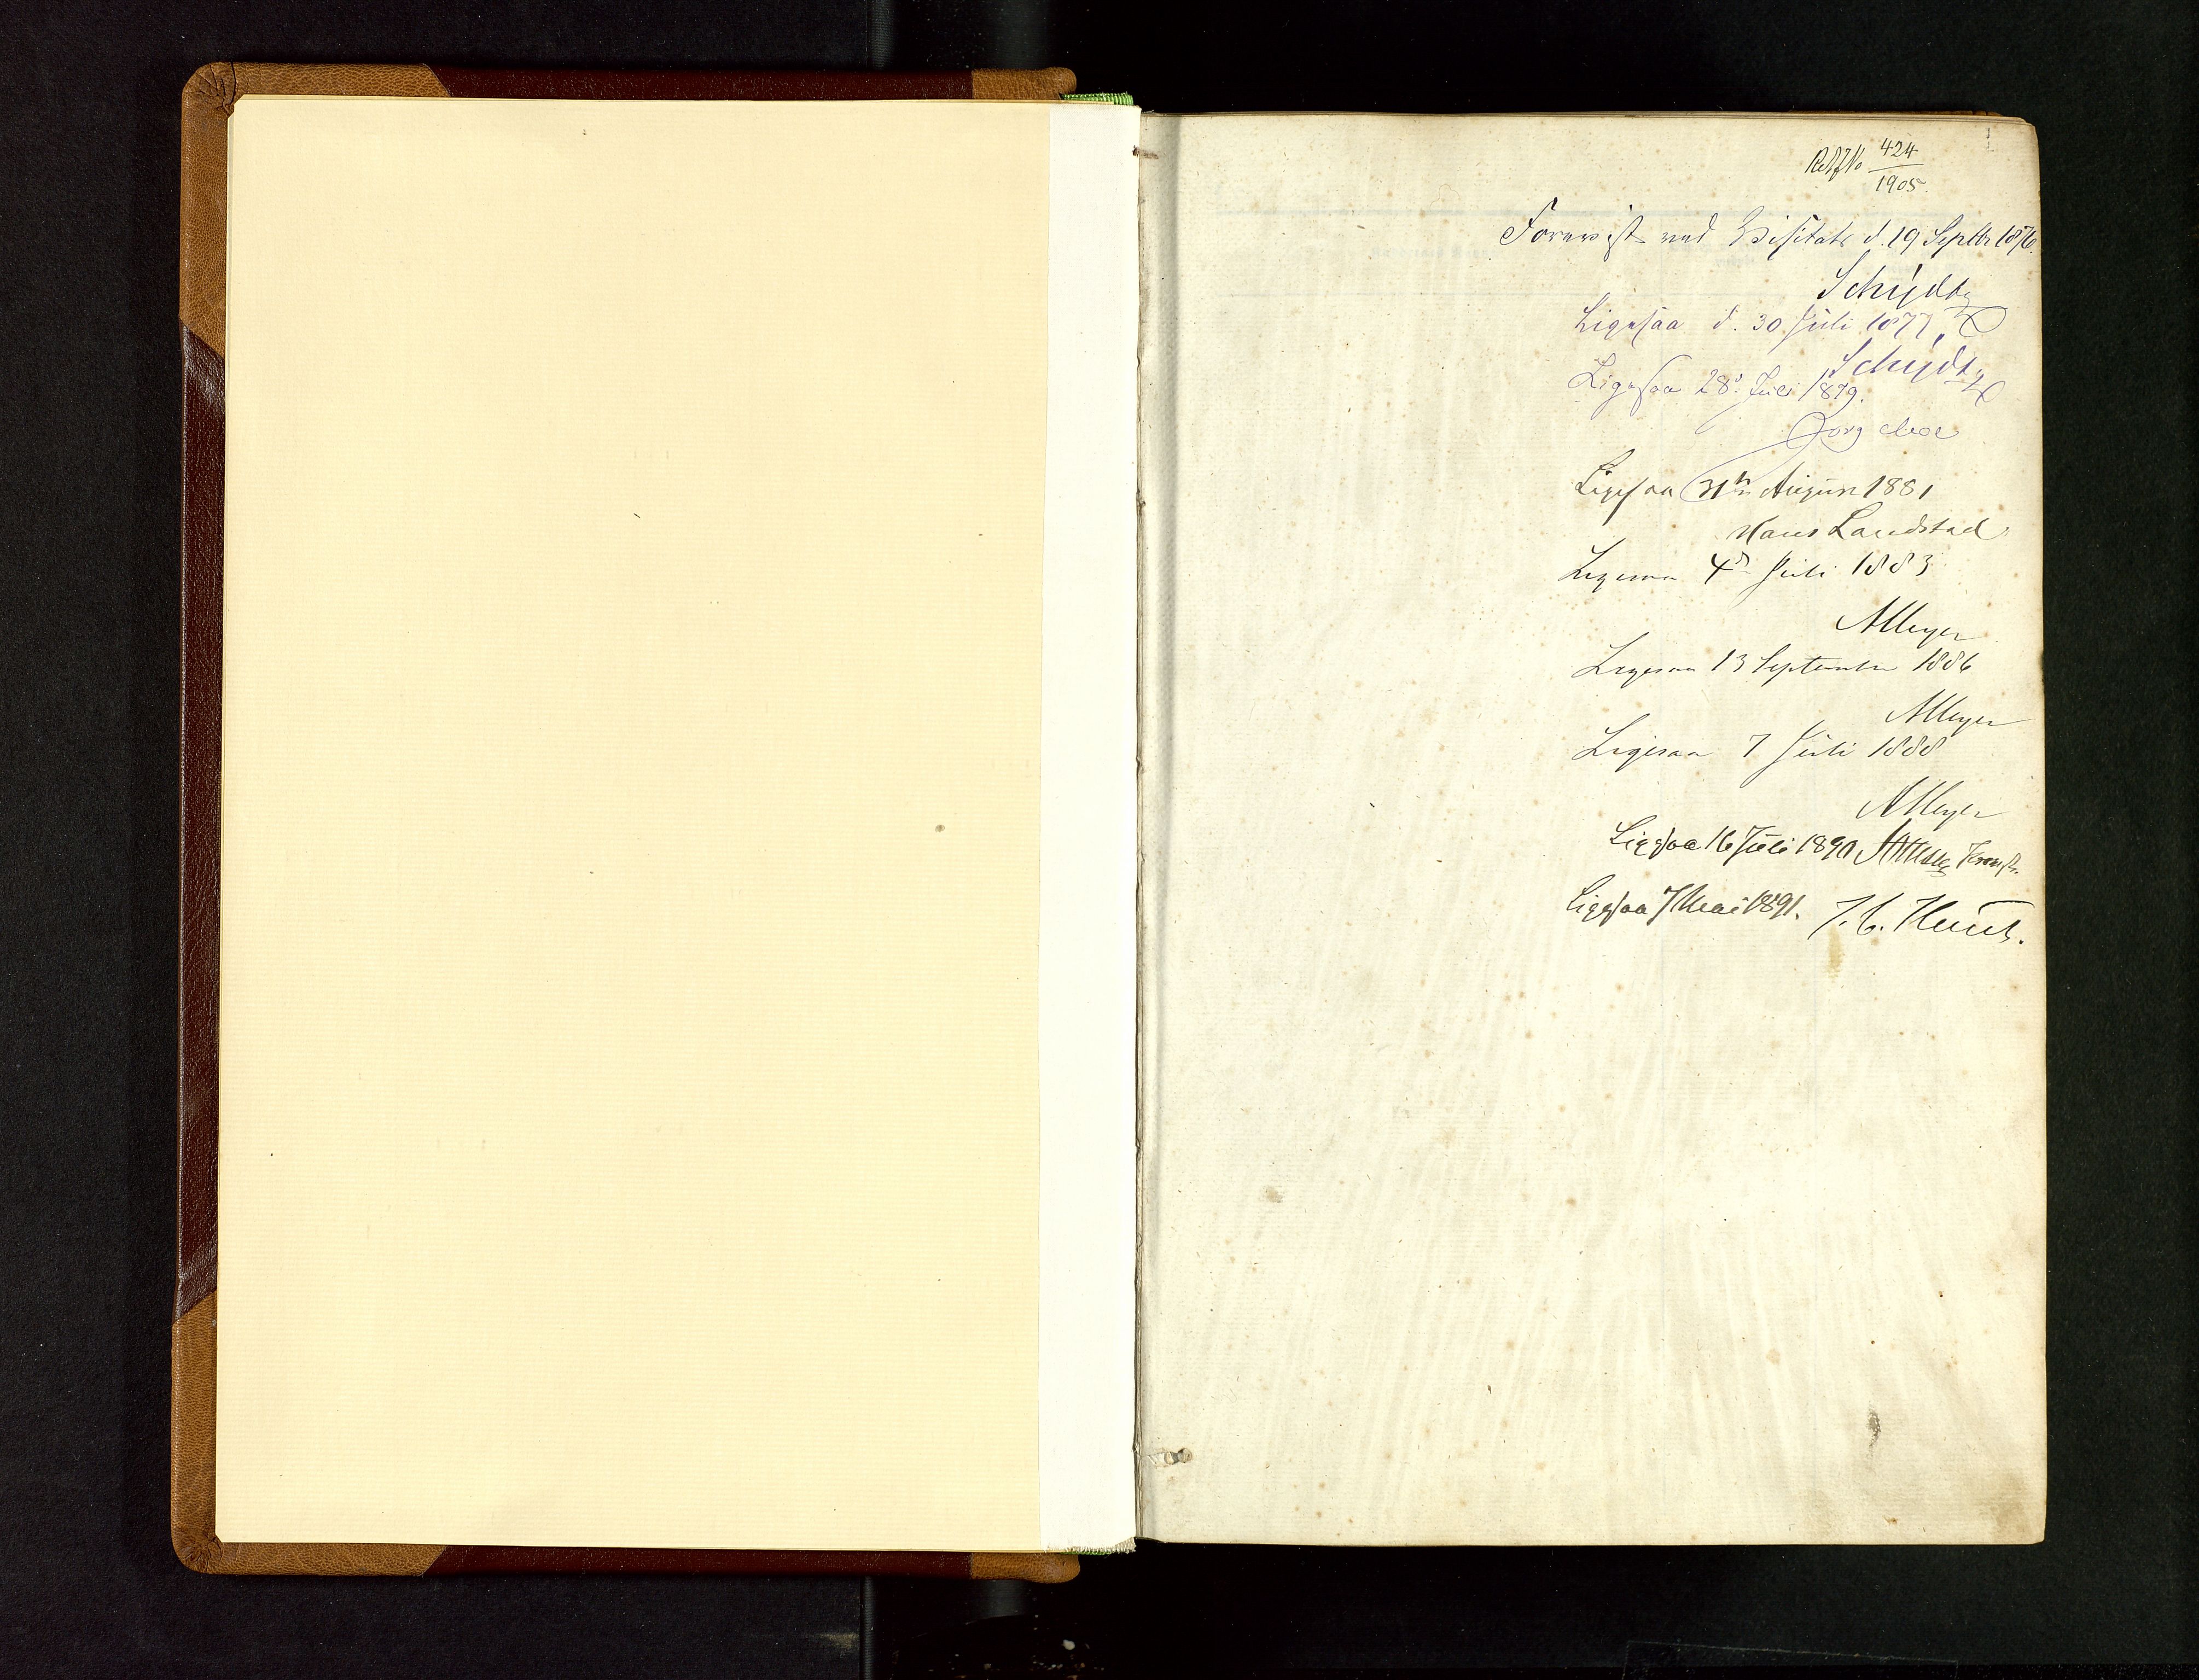 1
424
1905.
Forevist ved Visitats d. 19 Septbr 1876.
Schjeldr
Ligesaa d. 30 Juli 1877.
Ligesaa 28de Juli 1879.
Jørg Moe
Ligesaa 31te August 1881
Hans Landstad
Ligesaa 4de Juli 1883
AMeyer
Ligesaa 13 September 1886
AMeyer
Ligesaa 7 Juli 1888
AMeyer
Ligesaa 16 Juli 1890
Ligesaa 7 Mai 1891. J. C. Heuch.